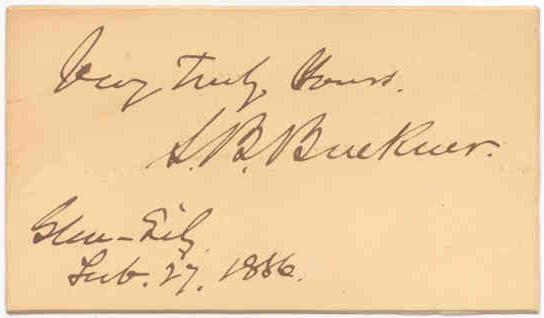 Very truly Yours.
S. B. Buckner.
Glen-Lily.
Feb. 27. 1886.